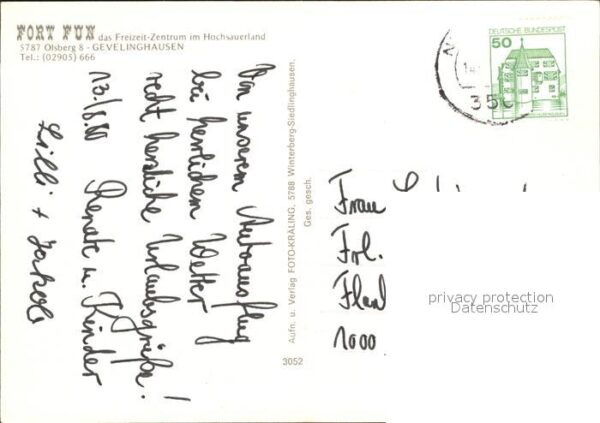 FORT FUN das Freizeit-Zentrum im Hochsauerland
5787 Olsberg 8 - GEVELINGHAUSEN
Tel.: (02905) 666
Von unserem Autoausflug
bei herrlichem Wetter
recht herzliche Urlaubsgrüße!
13./8.80 Renate u. Kinder
Lilli + Jakob
Aufn. u. Verlag FOTO-KRÄLING, 5788 Winterberg-Siedlinghausen.
Ges. gesch.
3052
50
DEUTSCHE BUNDESPOST
14
350
Frau
Frl.
1000
privacy protection
Datenschutz